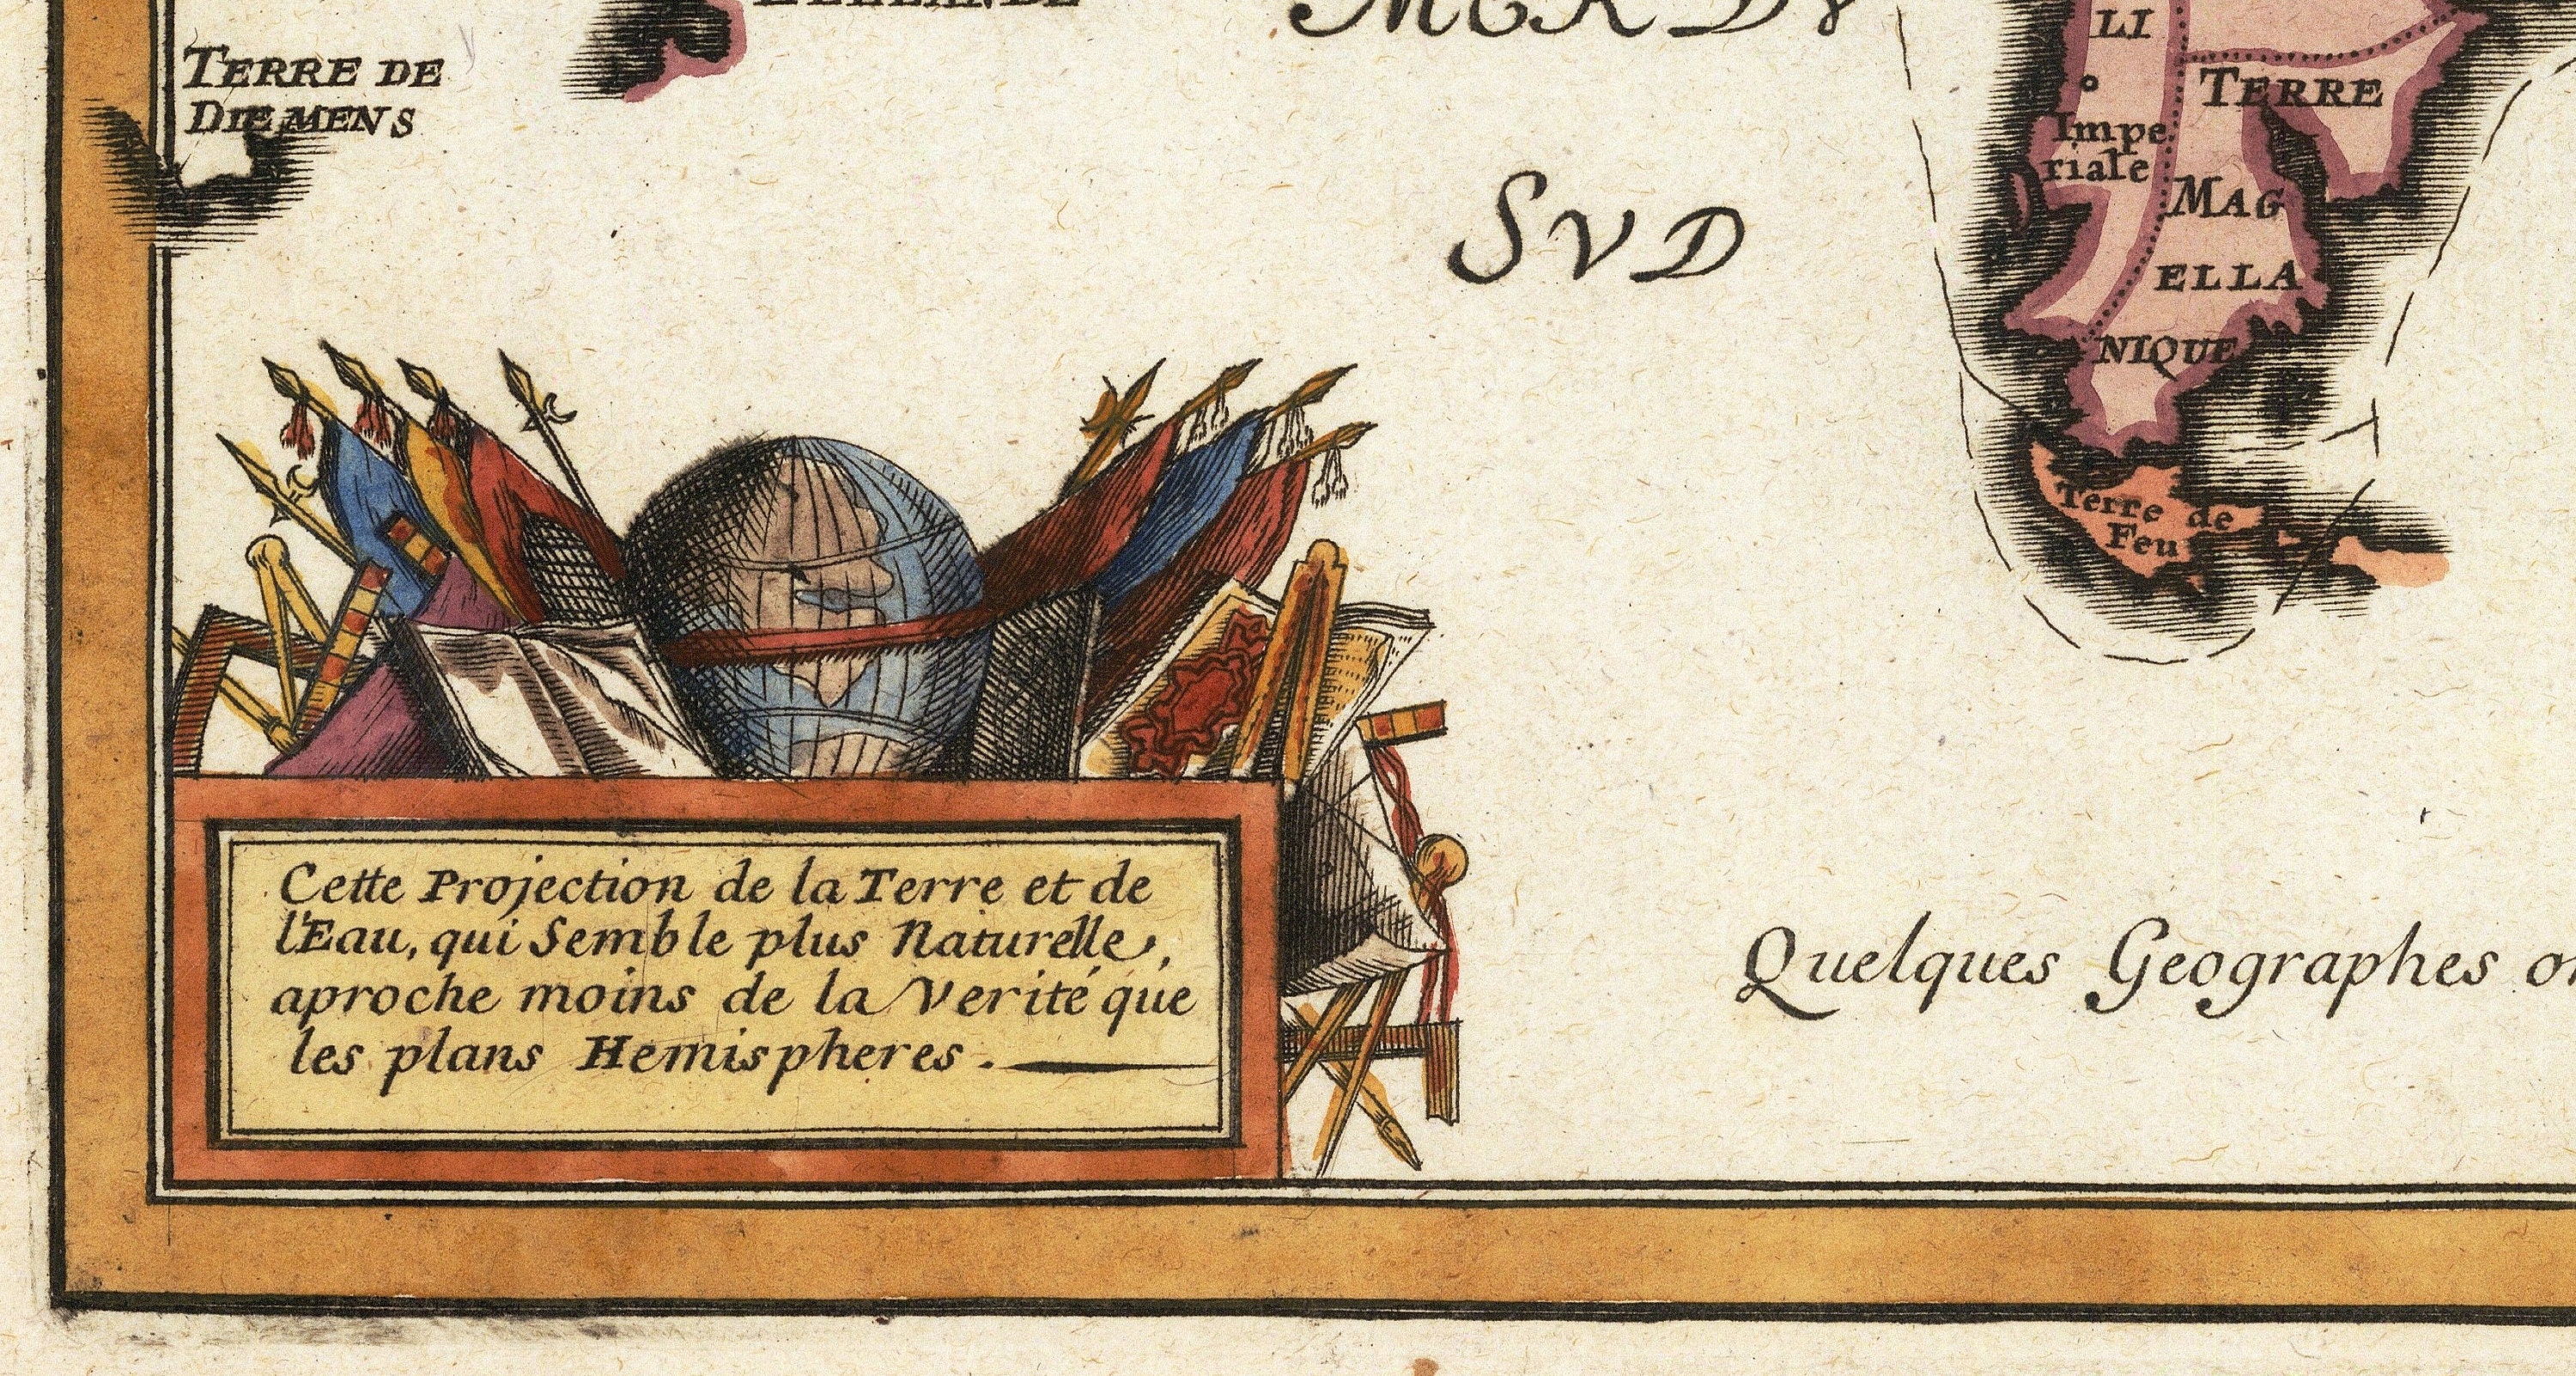 TERRE DE
DIEMENS
MER DV
SVD
LI
Impe
riale
TERRE
MAG
ELLA
NIQUE
Terre de
Feu
Cette Projection de la Terre et de
l'Eau, qui Semble plus Naturelle,
aproche moins de la Verité que
les plans Hemispheres.
Quelques Geographes